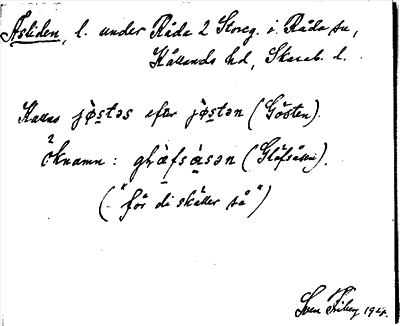 Åsliden, l. under Råda 2 Storeg. i Råda sn,
Kållands hd, Skarab. l.
Kallas jö̀stəs efter jö̀stən (Gösten).
öknamn: glä̀fsàsən (Gläfsåsen).
("för di skäller så")
Sven Friberg 1924.